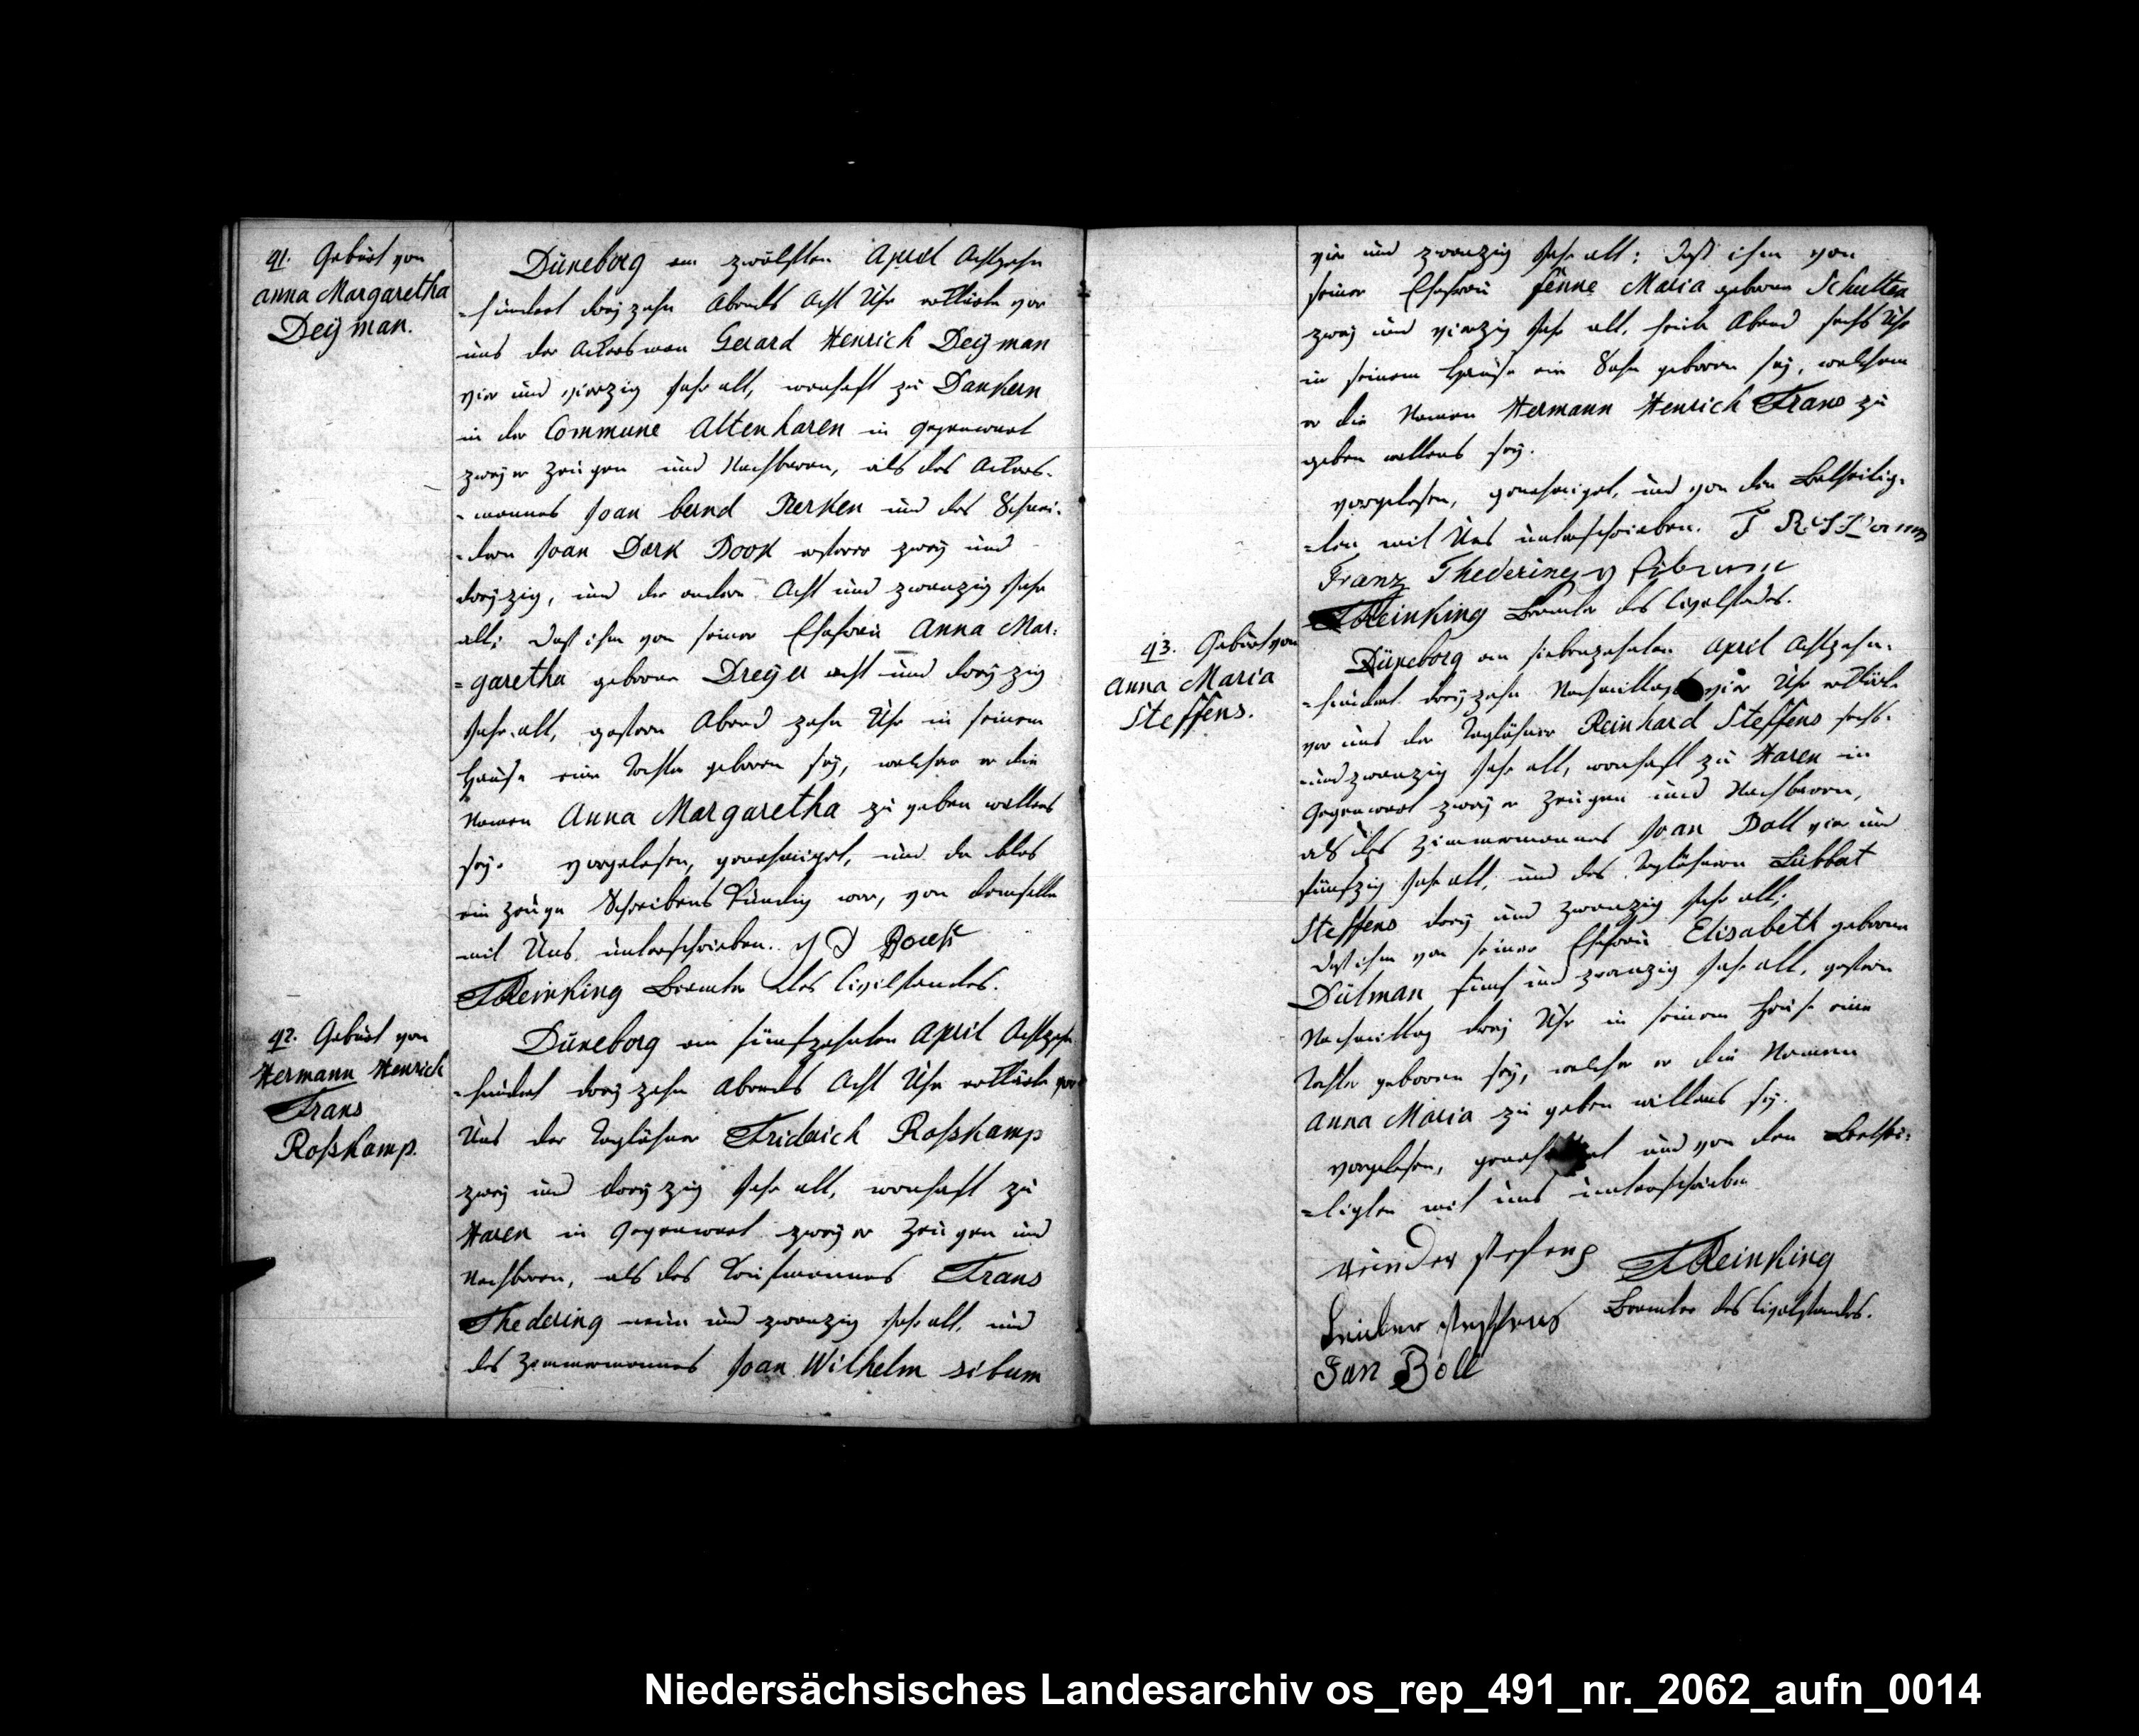 41. Geburt von
Anna Margaretha
Deÿman.
Düneborg am zwölften April Achtzehn
-hundert dreÿzehn Abends Acht Uhr erklärte vor
uns der Ackersman Gerard Henrich Deÿman
vier und vierzig Jahr alt, wonhaft zu Dankern
in der Commune Altenharen in Gegenwart
zweÿer Zeugen und Nachbaren, als des Ackers-
-mannes Joan bernd Kerken und des Schnei-
-dern Joan Derk Book ersterer zweÿ und
dreÿzig, und der andere Acht und zwanzig Jahr
alt; daß ihm von seiner Ehefrau Anna Mar:
=garetha geboren Dreÿer acht und dreÿzig
Jahr alt, gestern Abend zehn Uhr in seinem
Hause eine Tochter geboren seÿ, welcher er die
Namen Anna Margaretha zu geben willens
seÿ. vorgelesen, genehmiget, und da blos
ein Zeuge Schreibens kündig war, von demselben
mit Uns unterschrieben. J D Boek
FReinking Beamter des Civilstandes.
42. Geburt von
Hermann Henrich
Frans
Roßkamp.
Düneborg am fünfzehnten April Achtzehn
-hundert dreÿzehn Abends Acht Uhr erklärte vor
Uns der Taglöhner Friderich Roßkamp
zweÿ und dreÿzig Jahr alt, wonhaft zu
Haren in Gegenwart zweÿer Zeugen und
Nachbaren, als des Kaufmannes Frans
Thedering neun und zwanzig Jahr alt, und
des Zimmermannes Joan Wilhelm Sibum
vier und zwanzig Jahr alt; daß ihm von
seiner Ehefrau Fenne Maria geboren Schulten
zweÿ und vierzig Jahr alt, heute Abend sechs Uhr
in seinem Hause ein Sohn geboren seÿ, welchem
er die Namen Hermann Henrich Frans zu
geben willens seÿ.
vorgelesen, genehmiget, und von den Betheilig-
-ten mit Uns unterschrieben.
Franz Thedering Sibum
FReinking Beamter des Civilstandes.
43. Geburt von
Anna Maria
Steffens.
Düneborg am siebenzehnten April Achtzehn-
-hundert dreÿzehn Nachmittags vier Uhr erklärte
vor uns der Taglöhner Reinhard Steffens sechs-
-und zwanzig Jahr alt, wonhaft zu Haren in
Gegenwart zweÿer Zeugen und Nachbaren,
als des Zimmermannes Joan Boll vier und
fünfzig Jahr alt, und des Taglöhnern Lübbert
Steffens dreÿ und zwanzig Jahr alt;
daß ihm von seiner Ehefrau Elisabeth geboren
Dülman fünf und zwanzig Jahr alt, gestern
Nachmittag dreÿ Uhr in seinem Hause eine
Tochter geboren seÿ, welcher er die Namen
Anna Maria zu geben willens seÿ.
vorgelesen, genehmiget und von den Bethei-
-ligten mit uns unterschrieben
Steffens FReinking
Beamter des Civilstandes.
Steffens
Jan Boll
Niedersächsisches Landesarchiv os_rep_491_nr._2062_aufn_0014